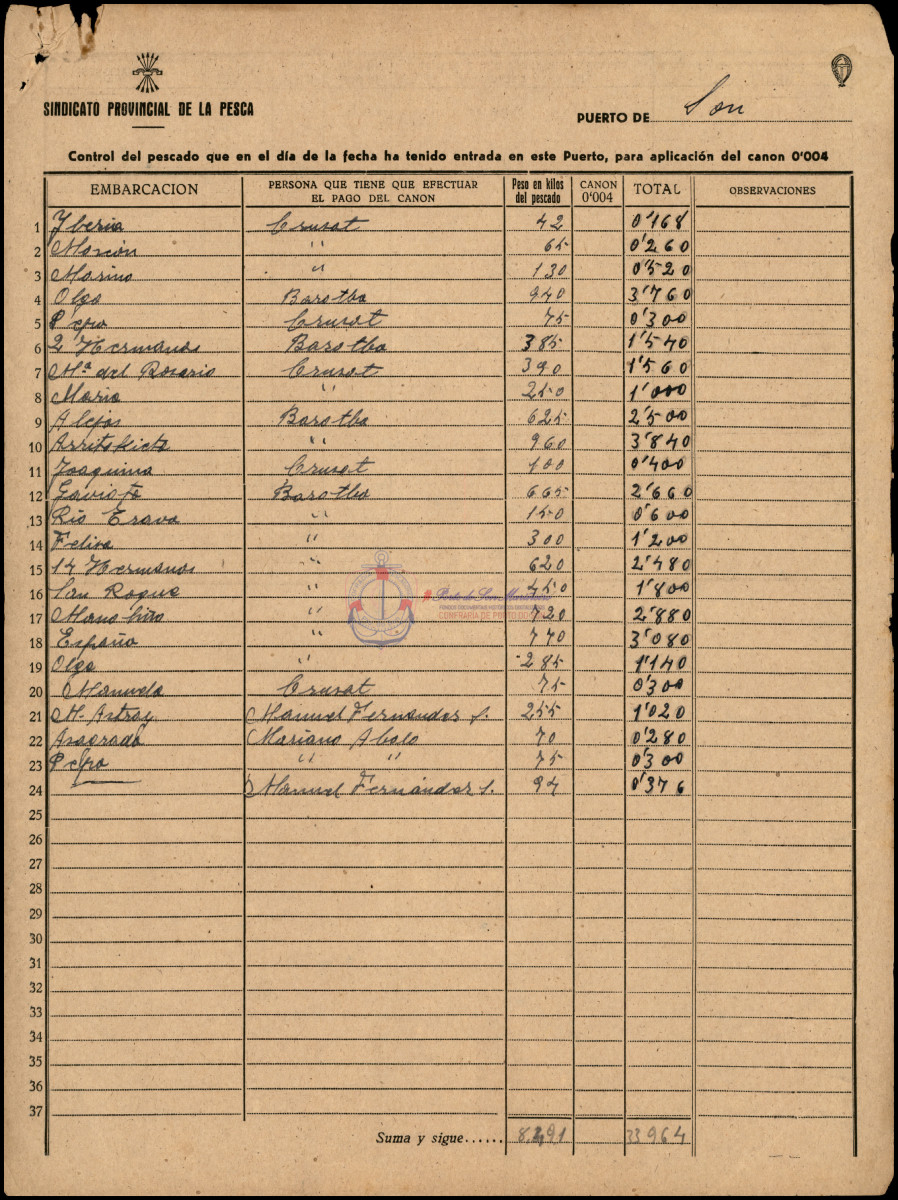 SINDICATO PROVINCIAL DE LA PESCA
PUERTO DE Son
Control del pescado que en el día de la fecha ha tenido entrada en este Puerto, para aplicación del canon 0'004
EMBARCACION PERSONA QUE TIENE QUE EFECTUAR EL PAGO DEL CANON Peso en kilos del pescado CANON 0'004 TOTAL OBSERVACIONES
1 Yberia Crusat 42 0'168
2 " 65 0'260
3 Marino " 130 0'520
4 Olga Barotba 940 3'760
5 Pepa Crusat 75 0'300
6 2 Hermanos Barotba 385 1'540
7 Mª del Rosario Crusat 390 1'560
8 Mario " 250 1'000
9 Barotba 625 2'500
10 " 960 3'840
11 Joaquina Crusat 100 0'400
12 Gaviota Barotba 665 2'660
13 Rio " 150 0'600
14 Felisa " 300 1'200
15 14 Hermanos " 620 2'480
16 San Roque " 450 1'800
17 " 720 2'880
18 España " 770 3'080
19 Olga " 285 1'140
20 Manuela Crusat 75 0'300
21 M. Astray Manuel Fernández S. 255 1'020
22 Asagrado Mariano Abalo 70 0'280
23 Pepa " " 75 0'300
24 Manuel Fernández S. 94 0'376
25
26
27
28
29
30
31
32
33
34
35
36
37
Suma y sigue...... 8.491 33964
Porto do Son
CONFRARÍA DE